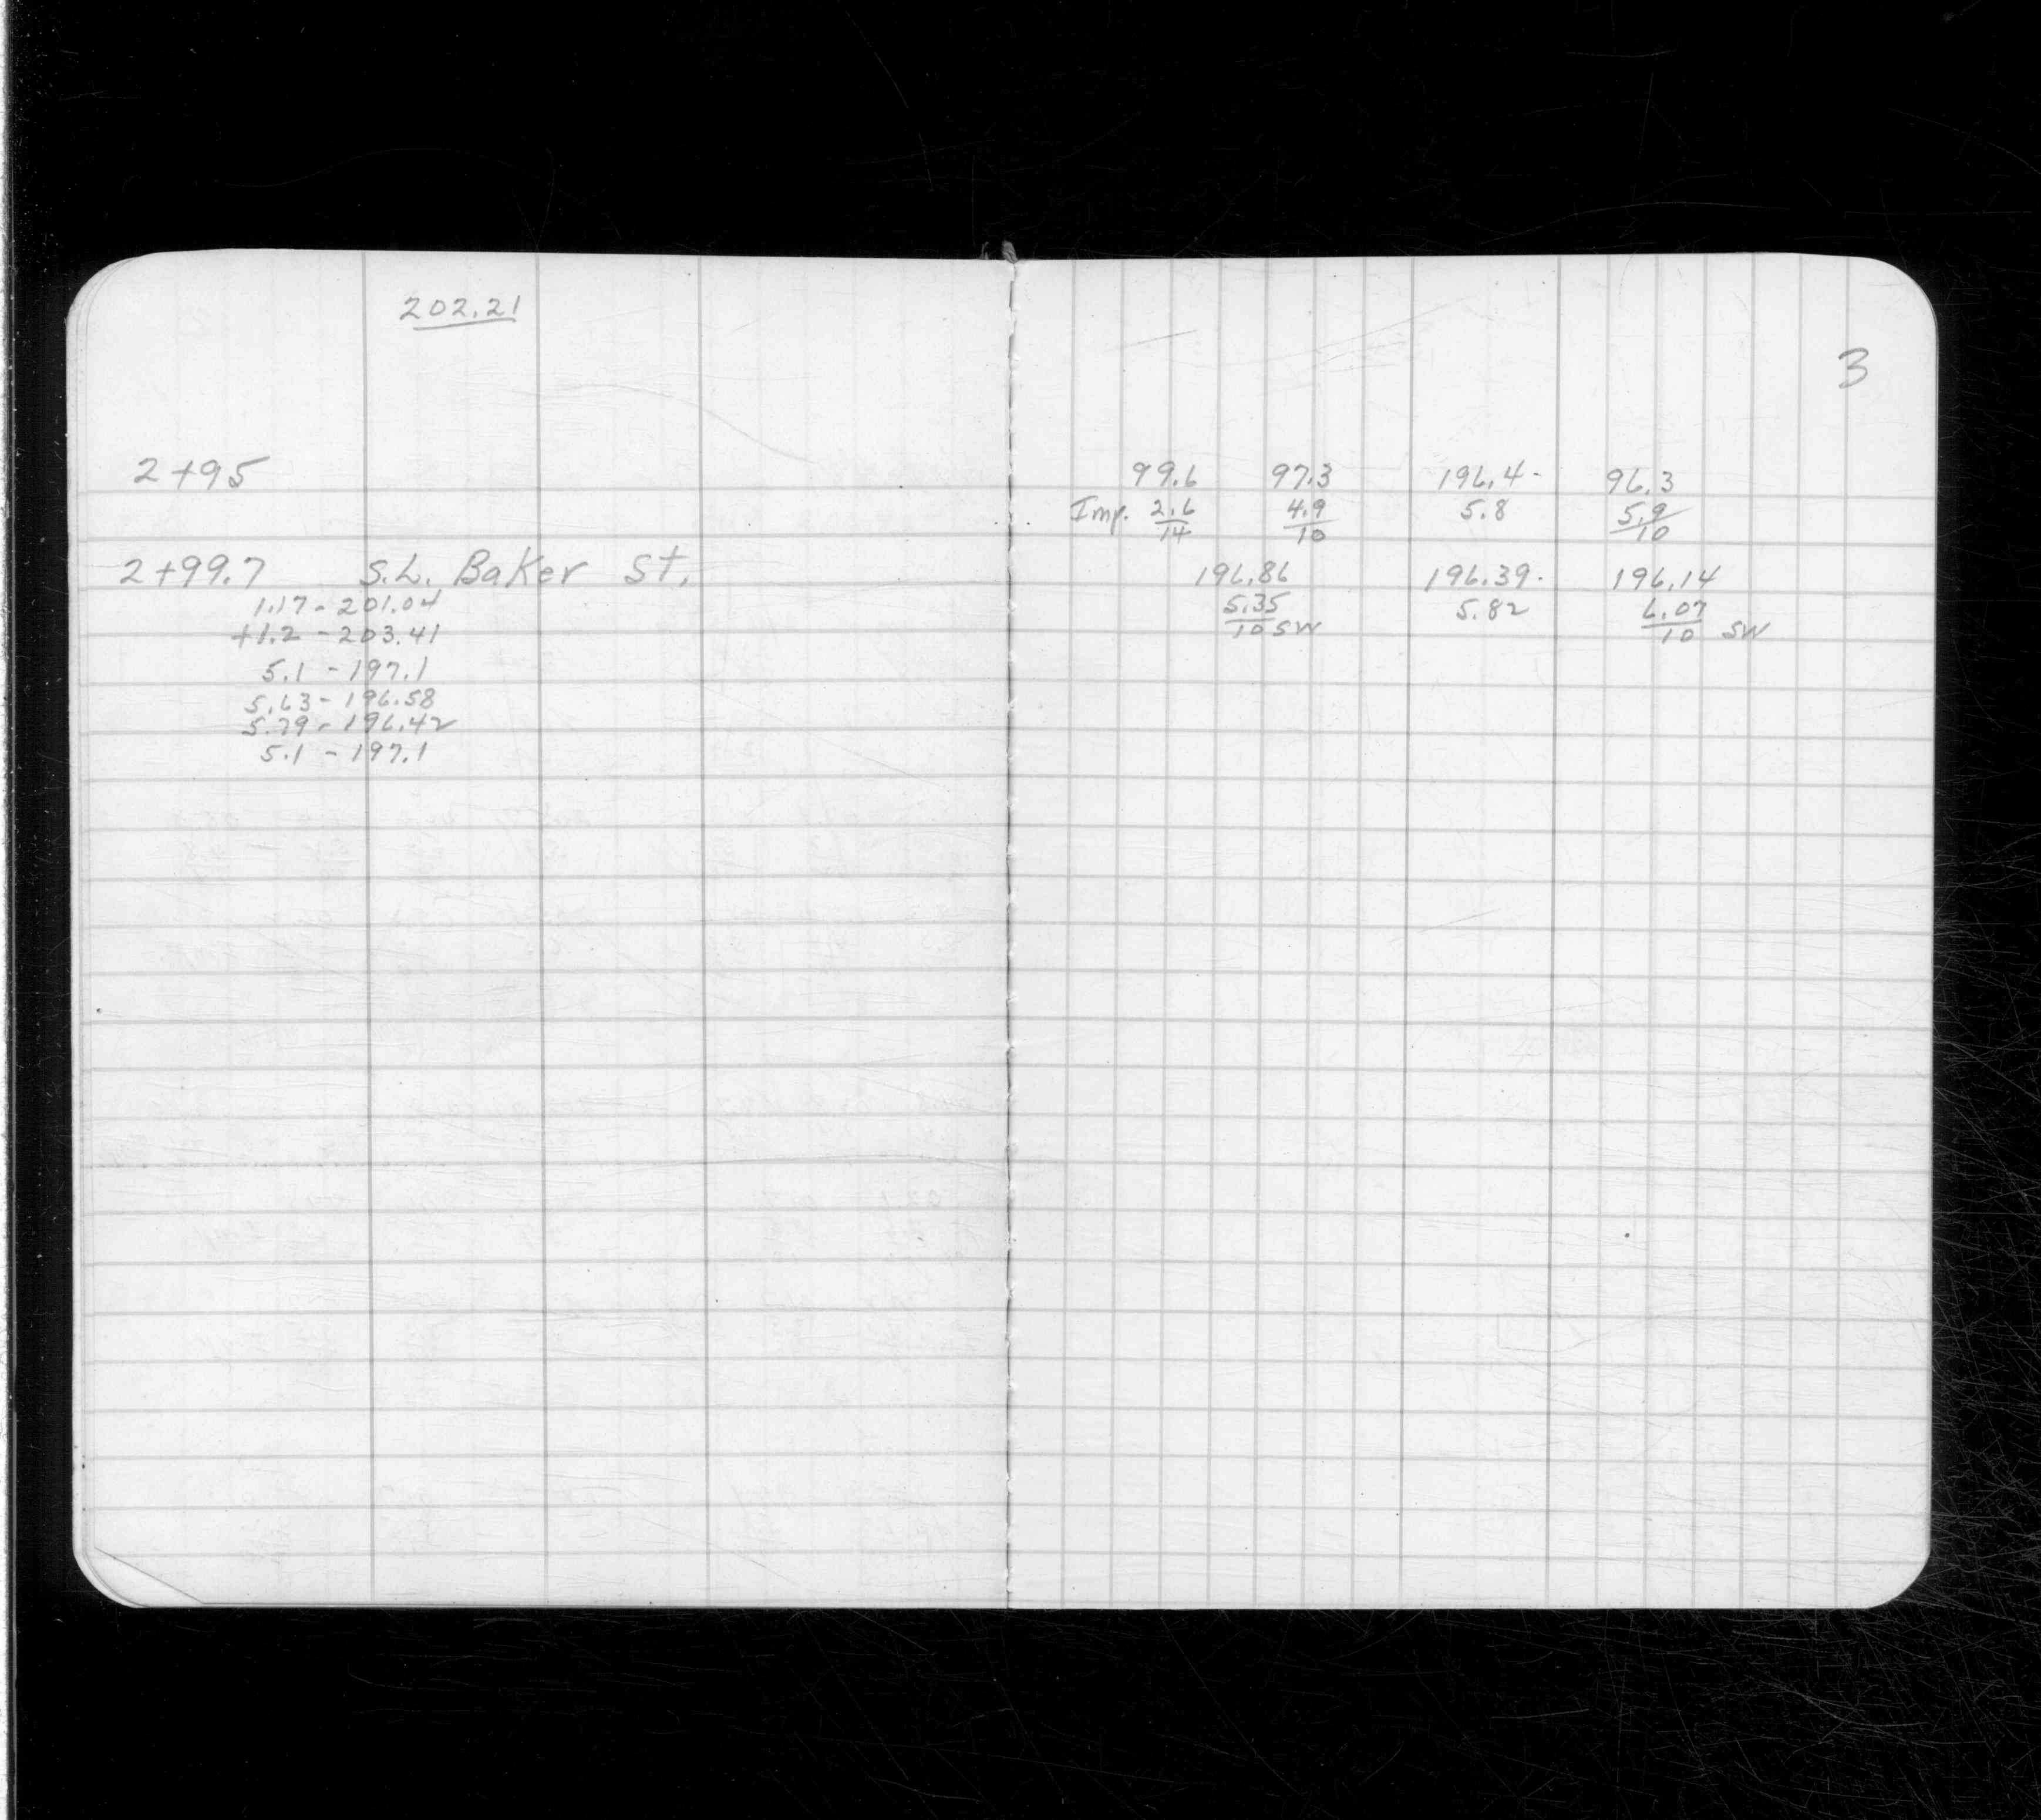 202.21
3
2+95
99.6 97.3 196.4- 96.3
Imp. 2.6 4.9 5.8 5.9
14 10 10
2+99.7 S.L. Baker St.
196.86 196.39- 196.14
1.17 - 201.04
5.35 5.82 6.07
+1.2 - 203.41
10 SW 10 SW
5.1 - 197.1
5.63 - 196.58
5.79 - 196.42
5.1 - 197.1